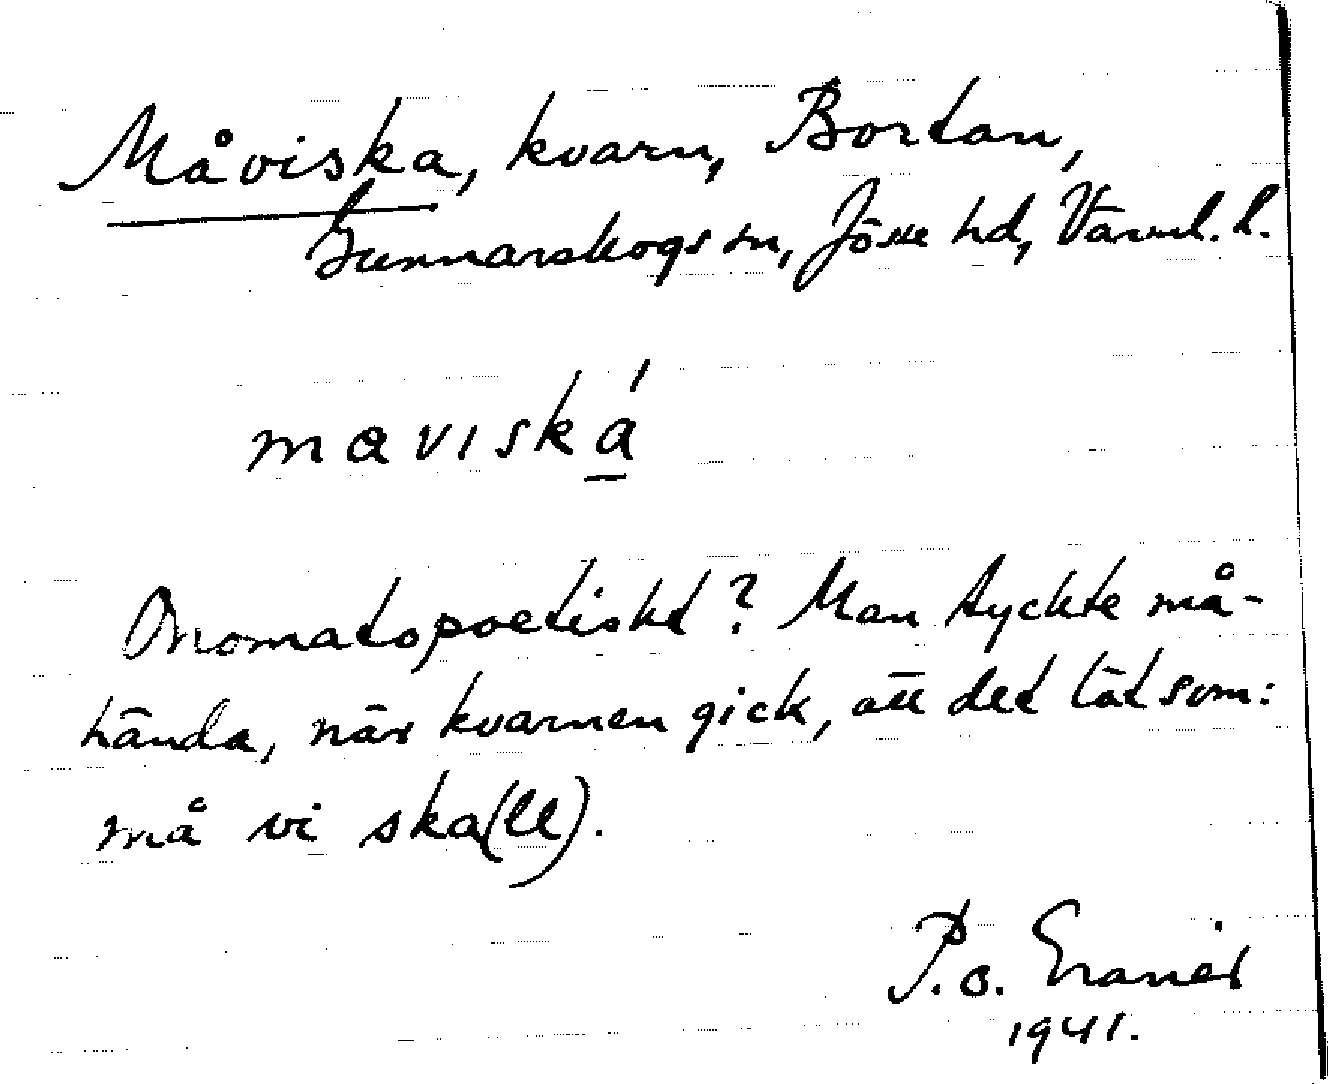 Måviska, kvarn, Bortan,
Gunnarskogs sn, Jösse hd, Värml. l.
maviská
Onomatopoetiskt? Man tyckte må-
hända, när kvarnen gick, att det lät som:
må vi ska(ll).
P.O. Eranér
1941.